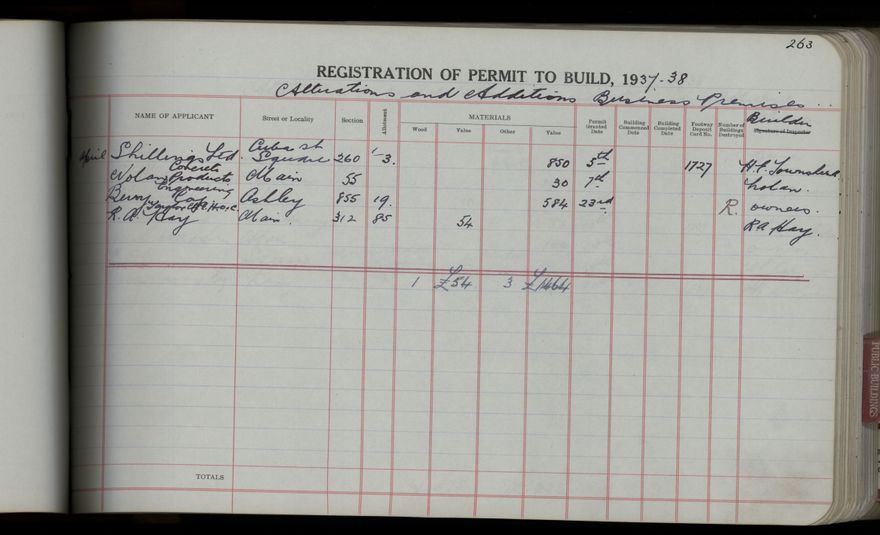 263
REGISTRATION OF PERMIT TO BUILD, 1937-38
Alterations and Additions Business Premises
NAME OF APPLICANT Street or Locality Section Allotment MATERIALS Permit Granted Date Building Commenced Date Building Completed Date Footway Deposit Card No. Number of Buildings Destroyed Builder Signature of Inspector
Wood Value Other Value
April Shillings Ltd. Cuba St Square 260 1/3. 850 5th 1727 H.F.
Nolans Concrete Products Main 55 30 7th Nolan.
Berry Engineering Coy Ashley 855 19. 584 23rd R. owners.
R. A. Hay Main. 312 85 54 R A Hay.
1 £54 3 £1464
TOTALS
PUBLIC BUILDINGS